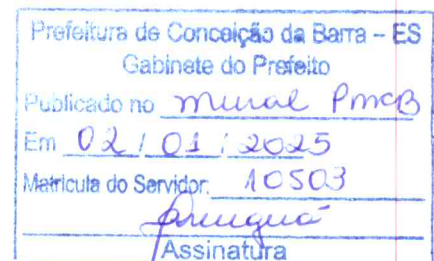 Prefeitura de Conceição da Barra – ES
Gabinete do Prefeito
Publicado no mural PmcB
Em 02 / 01 / 2025
Matricula do Servidor: 10503
Assinatura